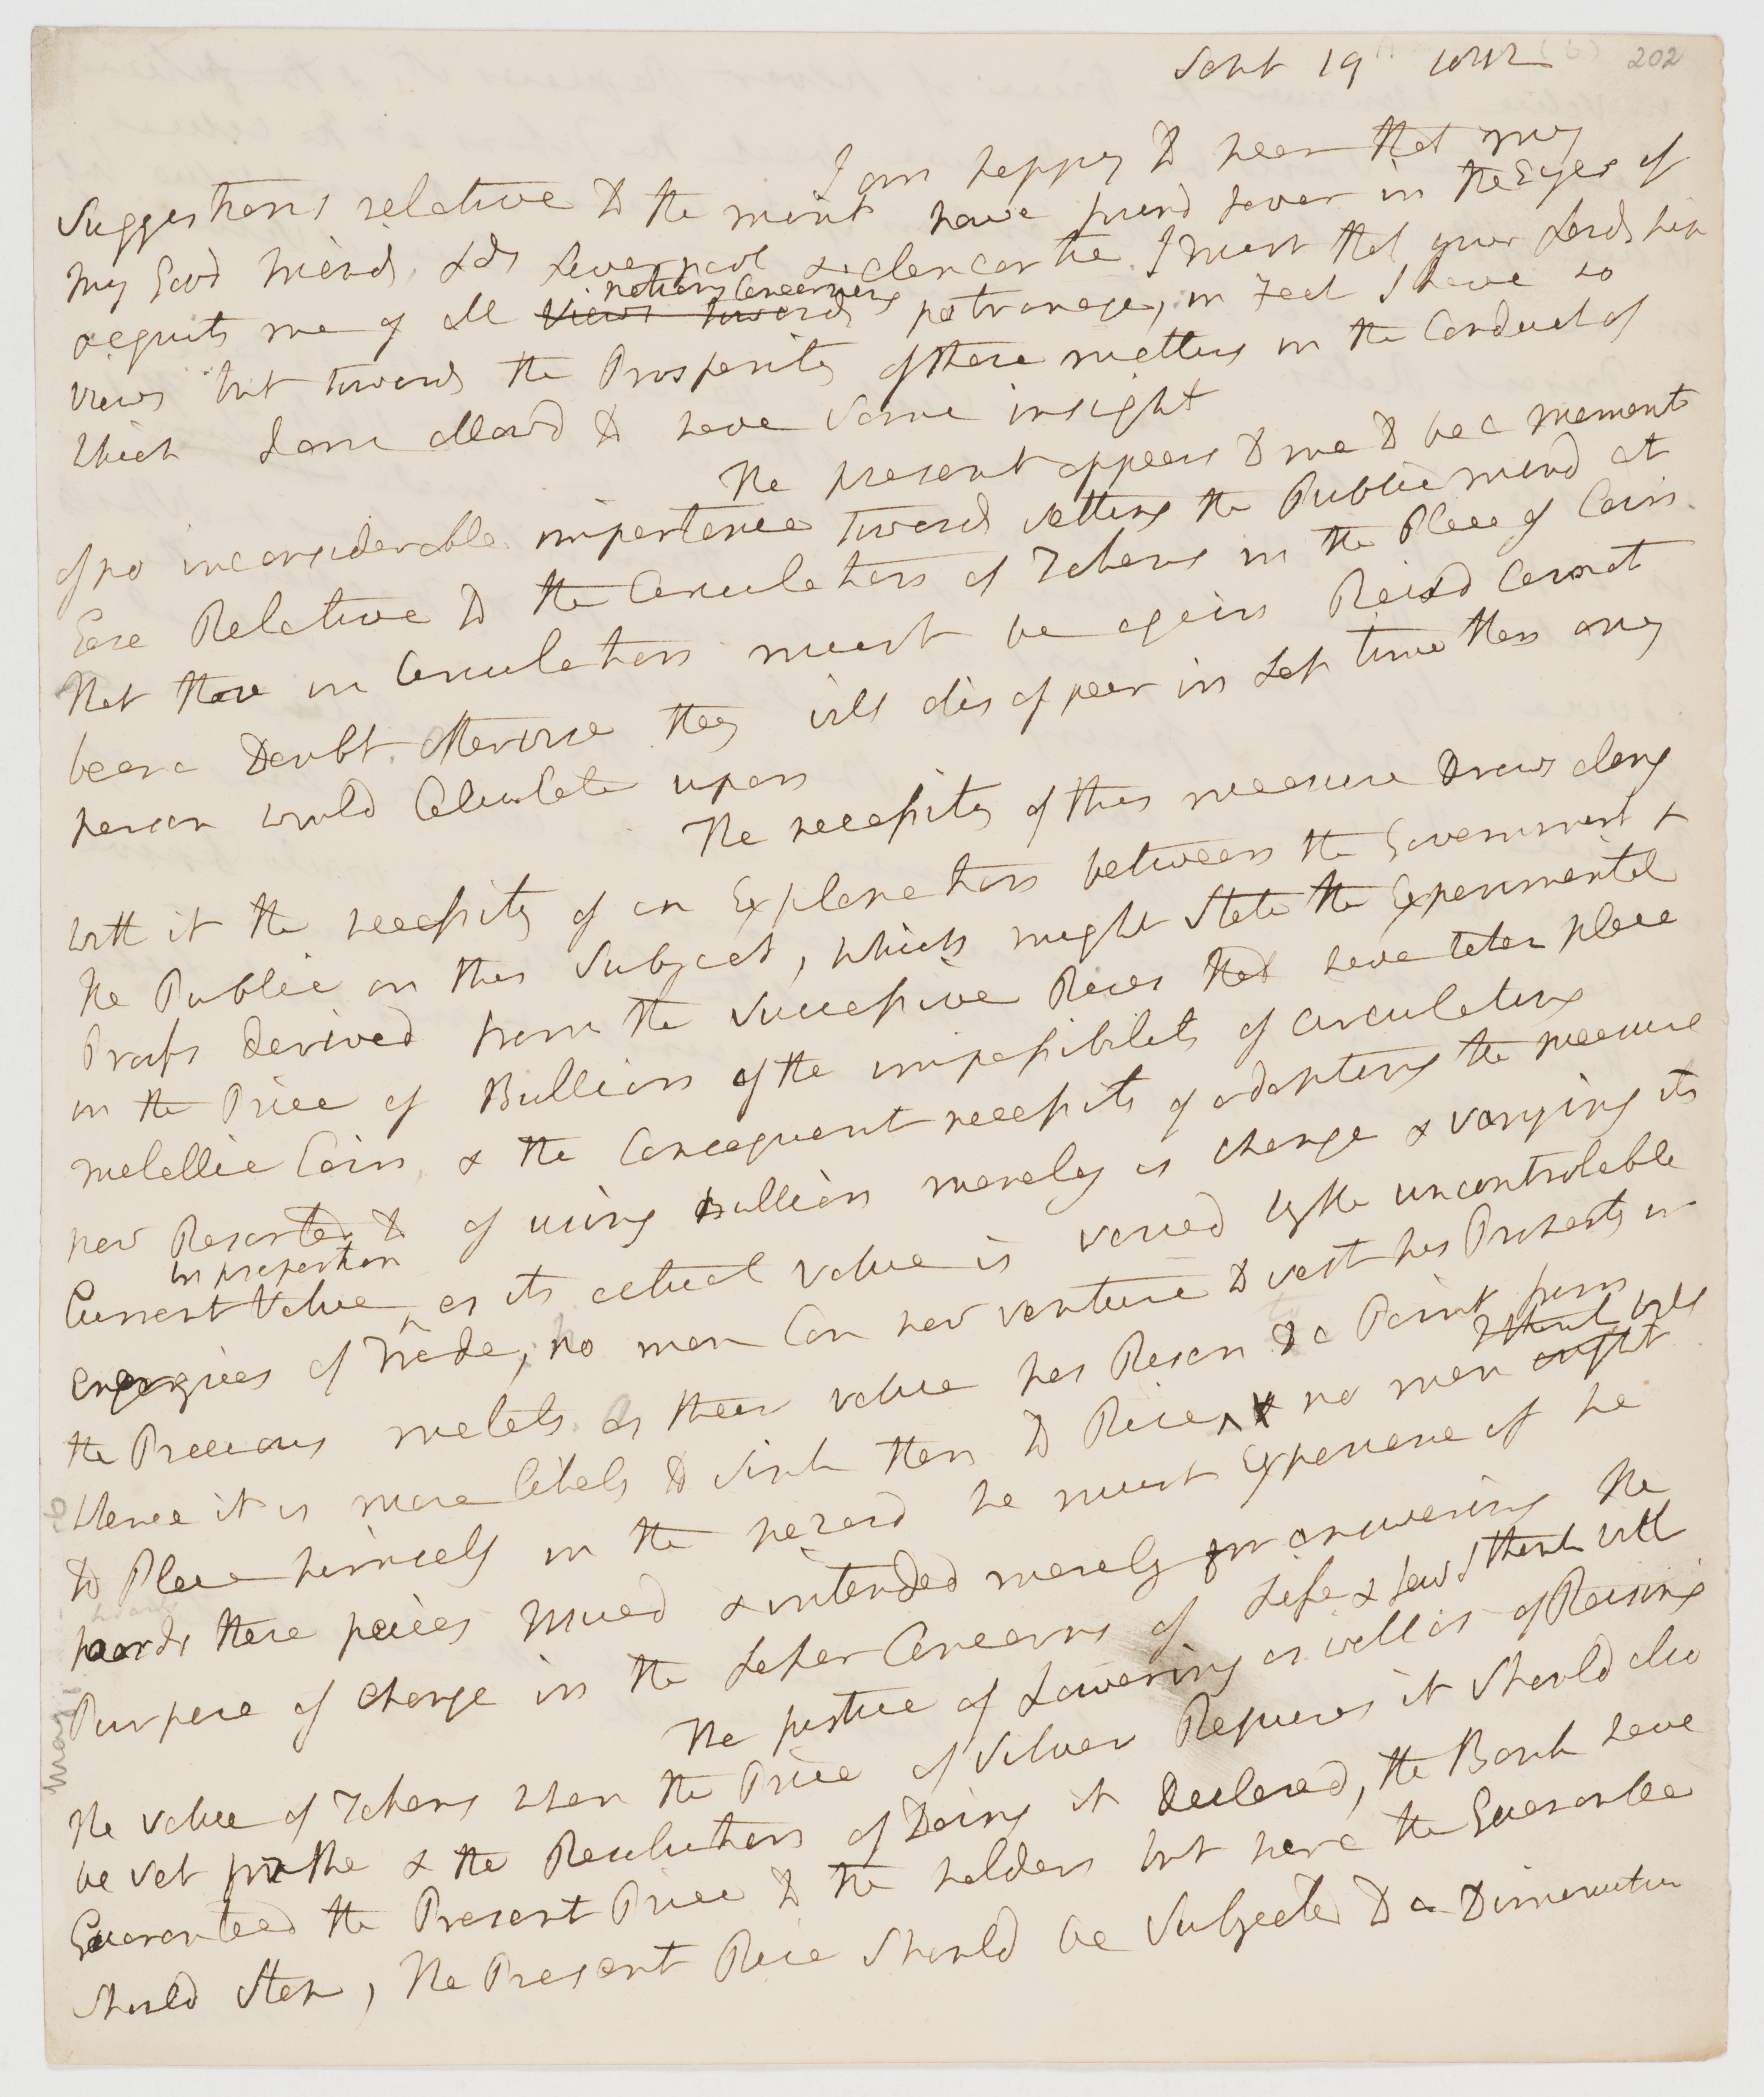 Sept 19 1812
202
I am happy to hear that my
Suggestions relative to the mint have found favor in the Eyes of
my Good Friends Lds Liverpool & Clancartie. I trust that your Lordship
acquits me of all Views towards notions Concerning patronage, in Fact I have no
views but towards the Prosperity of these matters in the Conduct of
Which I am allowd to have Some insight
The present appears to me to be a moment
of no inconsiderable importance towards setting the Public mind at
Ease Relative to the Circulation of Tokens in the Place of Coin.
That those in Circulation must be again Raisd Cannot
bear a Doubt. otherwise they will disappear in Less time than any
person would Calculate upon
The necessity of this measure Draws along
with it the necessity of an Explanation between the Government &
the Public on this Subject, which might State the Experimental
Proofs derived from the Successive Rises that have taken place
in the Price of Bullion of the impossibility of circulating
metallic Coin, & the Consequent necessity of adopting the measure
now Resorted to of using bullion merely as change & varying its
Current Value in proportion as its actual value is varied by the uncontrolable
energies of Trade, no man Can now venture to vest his Property in
the Precious metals. as their value has Risen to a Point from
Whence it is more likely to sink than to Rise, & no man ought I think will
to Place himself in the hazard he must Experience if he
hoards these peices issued & intended merely for answering the
Purpose of change in the Lesser Concerns of Life & Law I think with
The justice of Lowering as well as of Raising
the value of Tokens when the Price of Silver Requires it Should also
be set forthe & the Resolution of Doing it Declared, the Bank have
Guaranteed the Present Price to the holders but here the Guarantee
Should Stop, The Present Rise Should be Subjected to a Diminution